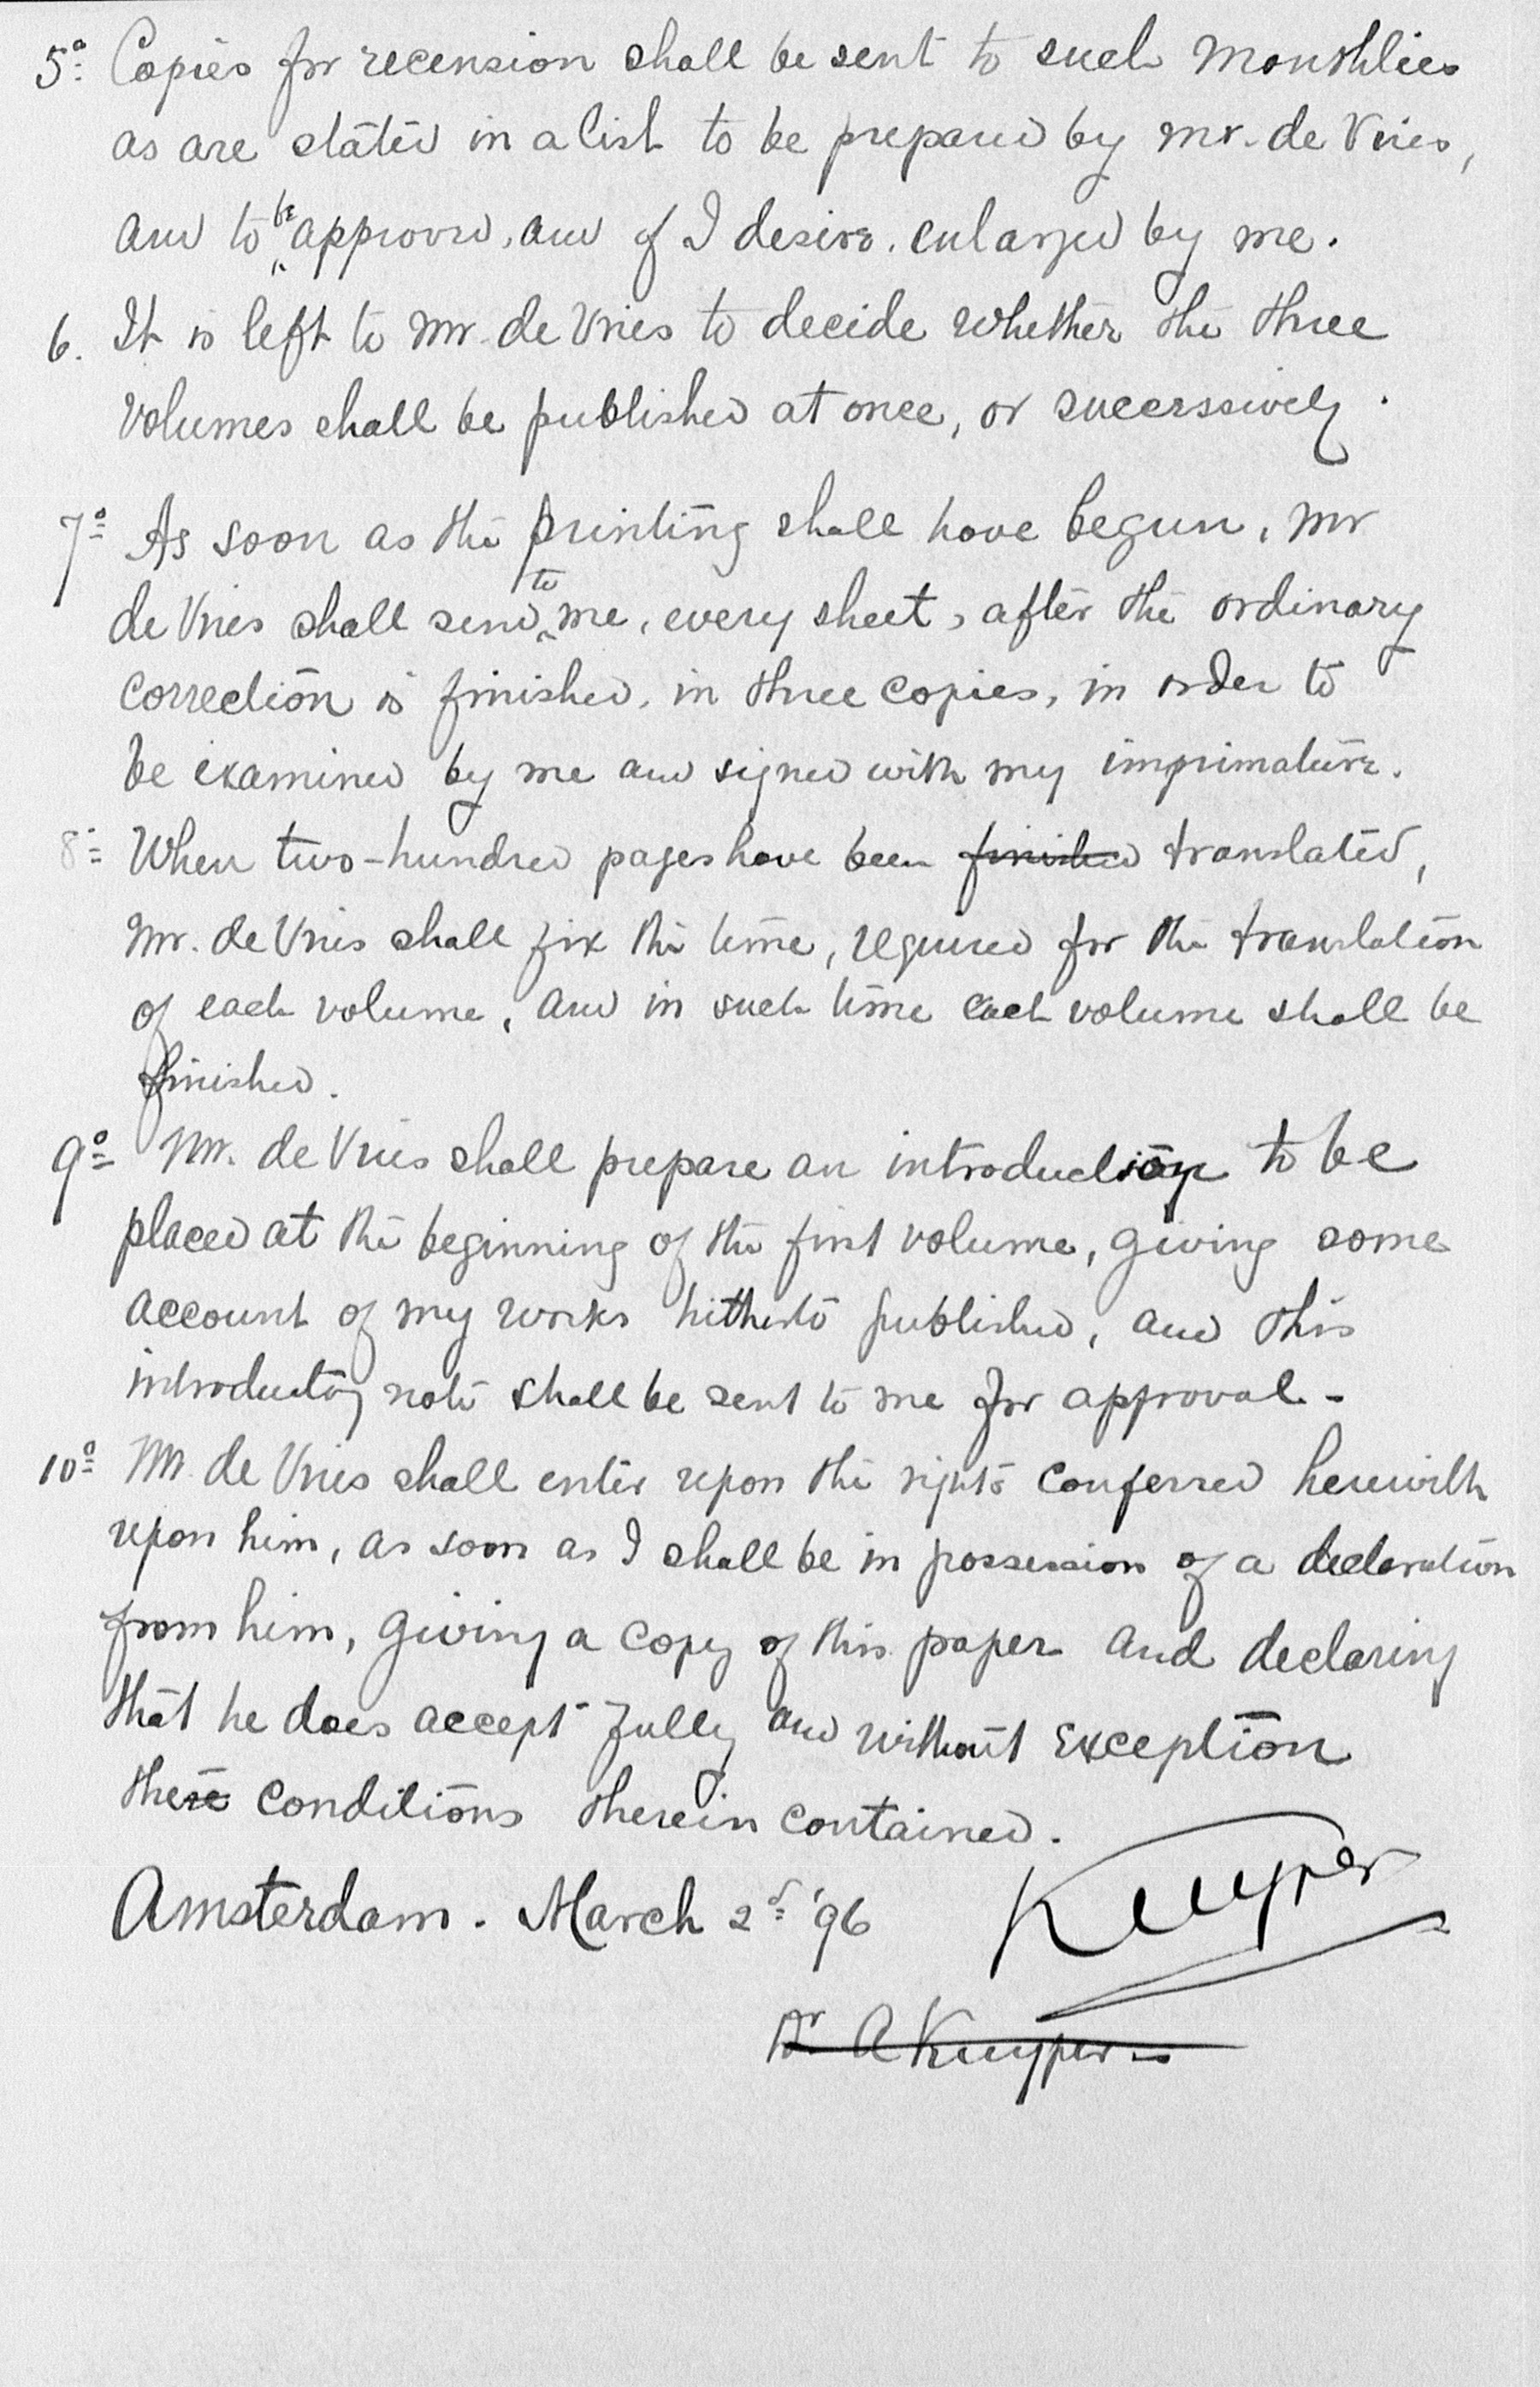 5º Copies for recension shall be sent to such Monthlies
as are stated in a list to be prepared by Mr. de Vries,
and to be approved, and if I desire, enlarged by me.
6. It is left to Mr. de Vries to decide whether the three
volumes shall be published at once, or successively.
7º As soon as the printing shall have begun, Mr
de Vries shall send to me, every sheet, after the ordinary
correction is finished, in three copies, in order to
be examined by me and signed with my imprimature.
8º When two-hundred pages have been finished translated,
Mr. de Vries shall fix the time, required for the translation
of each volume, and in such time each volume shall be
finished.
9º Mr. de Vries shall prepare an introduction to be
placed at the beginning of the first volume, giving some
account of my works hitherto published, and this
introductory note shall be sent to me for approval -
10º Mr. de Vries shall enter upon the rights conferred herewith
upon him, as soon as I shall be in possession of a declaration
from him, giving a copy of this paper and declaring
that he does accept fully and without exception
these conditions therein contained.
Amsterdam. March 2d '96 Kuyper
Dr A Kuyper